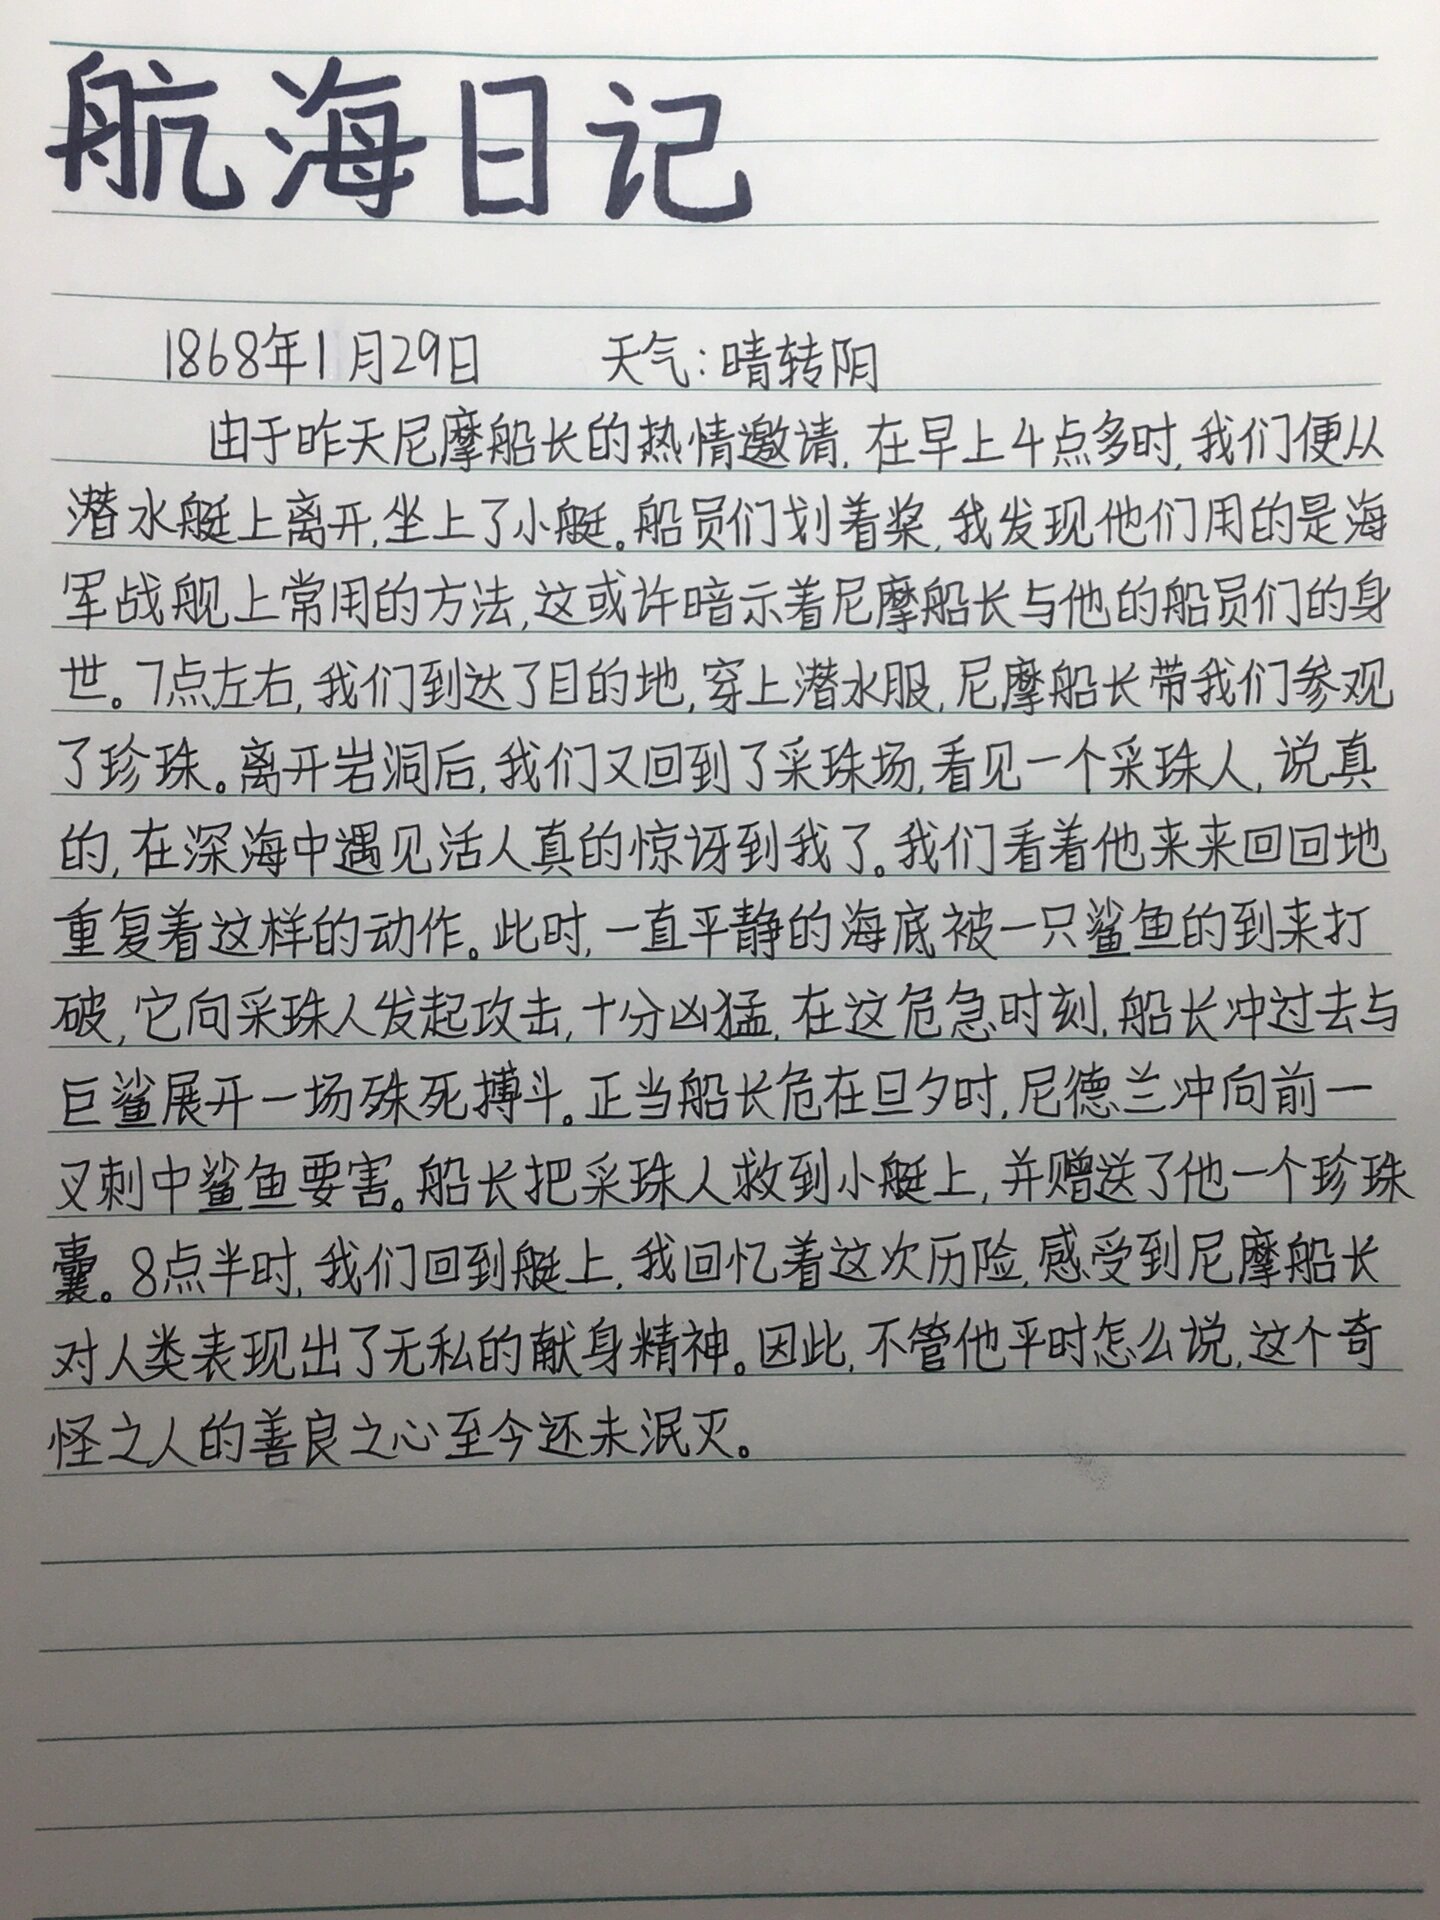 航海日记
1868年1月29日 天气:晴转阴
由于昨天尼摩船长的热情邀请,在早上4点多时,我们便从
潜水艇上离开,坐上了小艇。船员们划着桨,我发现他们用的是海
军战舰上常用的方法,这或许暗示着尼摩船长与他的船员们的身
世。7点左右,我们到达了目的地,穿上潜水服,尼摩船长带我们参观
了珍珠。离开岩洞后,我们又回到了采珠场,看见一个采珠人,说真
的,在深海中遇见活人真的惊讶到我了。我们看着他来来回回地
重复着这样的动作。此时,一直平静的海底被一只鲨鱼的到来打
破,它向采珠人发起攻击,十分凶猛,在这危急时刻,船长冲过去与
巨鲨展开一场殊死搏斗。正当船长危在旦夕时,尼德兰冲向前一
叉刺中鲨鱼要害。船长把采珠人救到小艇上,并赠送了他一个珍珠
囊。8点半时,我们回到艇上,我回忆着这次历险,感受到尼摩船长
对人类表现出了无私的献身精神。因此,不管他平时怎么说,这个奇
怪之人的善良之心至今还未泯灭。